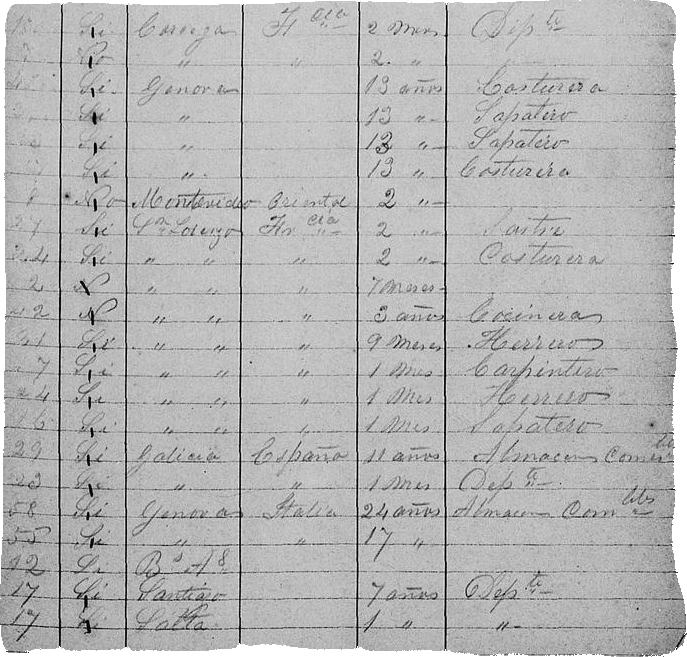 Si Corsega Fr cia 2 Mes Dep te
No " " 2 "
Si Genova 13 años Costurera
Si " 13 " Sapatero
Si " 13 " Sapatero
Si " 13 " Costurera
9 No Montevideo Oriental 2 "
27 Si Sn Lorenzo Fr cia 2 " Sastre
24 Si " " " 2 " Costurera
2 N " " " 7 Meses
N " " " 3 años Cocinera
Si " " " 9 Meses Herrero
7 Si " " " 1 Mes Carpintero
4 Si " " " 1 Mes Herrero
Si " " " 1 Mes Sapatero
29 Si Galicia España 11 años Almacen
23 Si " " 1 Mes Dep te
58 Si Genova Italia 24 años Almacen Com bles
55 Si " " 17 "
12 Si Bs As
17 Si Santiago 7 años Dep te
17 Si Salta 1 " "